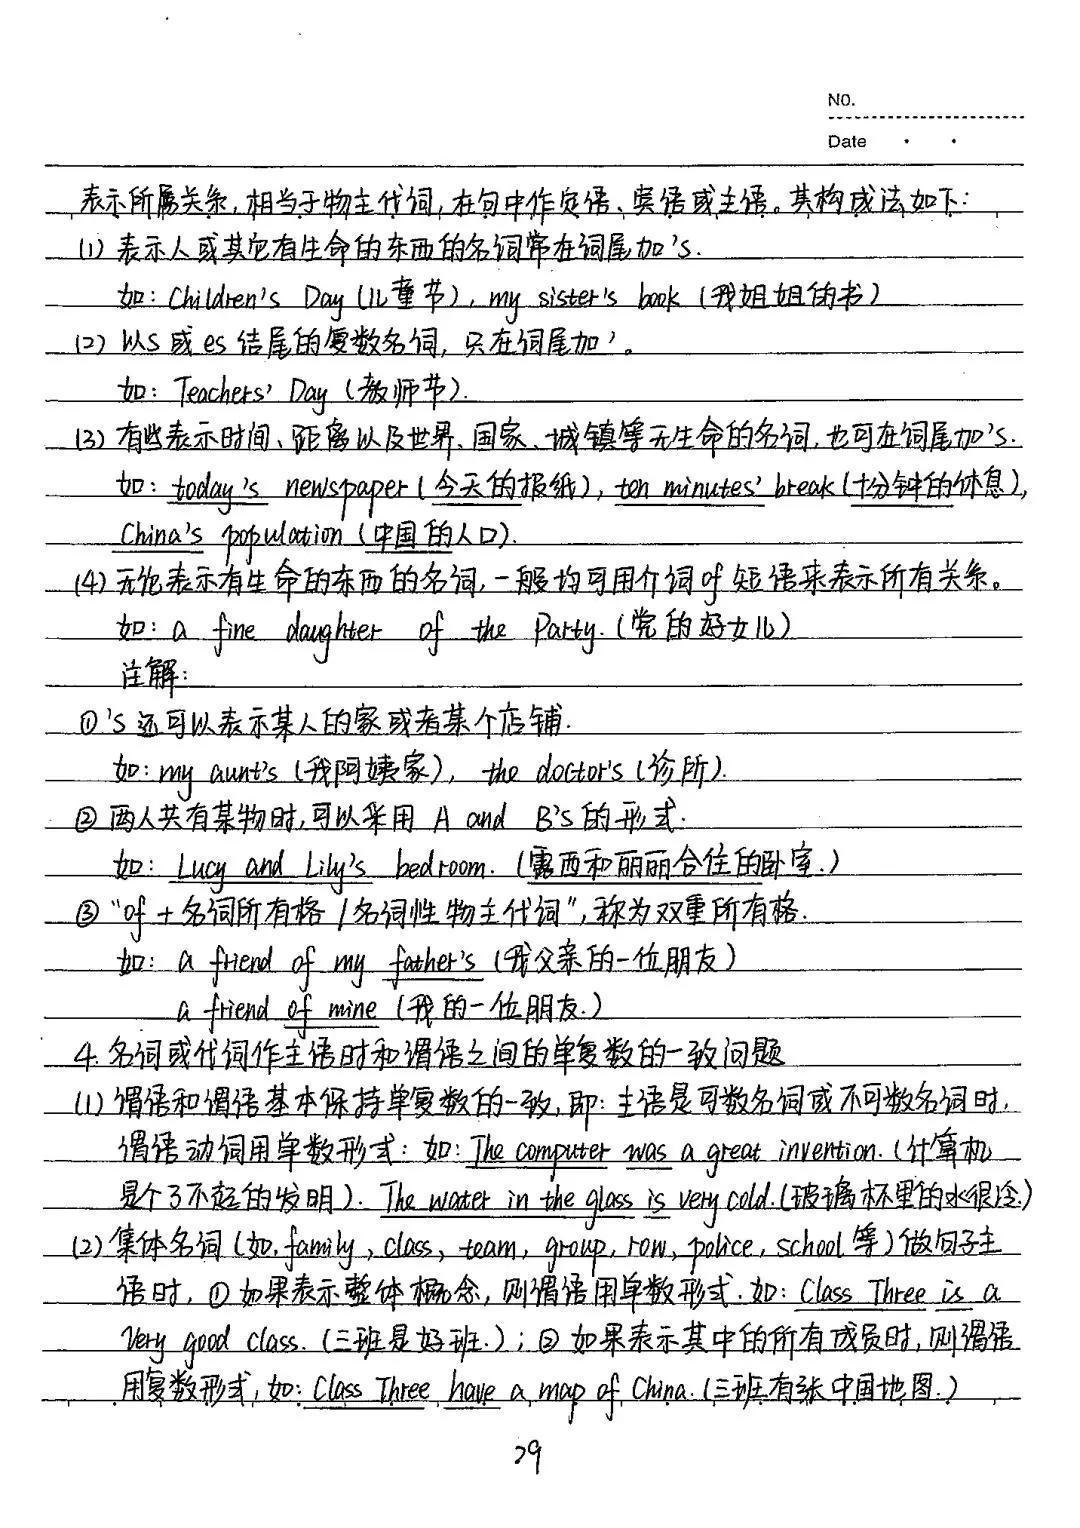 NO.
Date
表示所属关系,相当于物主代词,在句中作定语、宾语或主语。其构成法如下:
(1) 表示人或其它有生命的东西的名词常在词尾加's.
如: Children's Day (儿童节), my sister's book (我姐姐的书)
(2) 以s或es结尾的复数名词, 只在词尾加'。
如: Teachers' Day (教师节).
(3) 有些表示时间、距离以及世界、国家、城镇等无生命的名词,也可在词尾加's.
如: today's newspaper (今天的报纸), ten minutes' break (十分钟的休息),
China's population (中国的人口).
(4) 无论表示有生命的东西的名词,一般均可用介词of短语来表示所有关系。
如: a fine daughter of the Party. (党的好女儿)
注解:
①'s还可以表示某人的家或者某个店铺.
如: my aunt's (我阿姨家), the doctor's (诊所).
② 两人共有某物时,可以采用 A and B's的形式.
如: Lucy and Lily's bedroom. (露西和丽丽合住的卧室.)
③ “of + 名词所有格 / 名词性物主代词”,称为双重所有格.
如: a friend of my father's (我父亲的一位朋友)
a friend of mine (我的一位朋友.)
4. 名词或代词作主语时和谓语之间的单复数的一致问题
(1) 谓语和谓语基本保持单复数的一致,即: 主语是可数名词或不可数名词时,
谓语动词用单数形式: 如: The computer was a great invention. (计算机
是个了不起的发明). The water in the glass is very cold. (玻璃杯里的水很冷.)
(2) 集体名词 (如, family, class, team, group, row, police, school等) 做句子主
语时, ① 如果表示整体概念, 则谓语用单数形式. 如: Class Three is a
very good class. (三班是好班.) ; ② 如果表示其中的所有成员时, 则谓语
用复数形式, 如: Class Three have a map of China. (三班有张中国地图.)
29